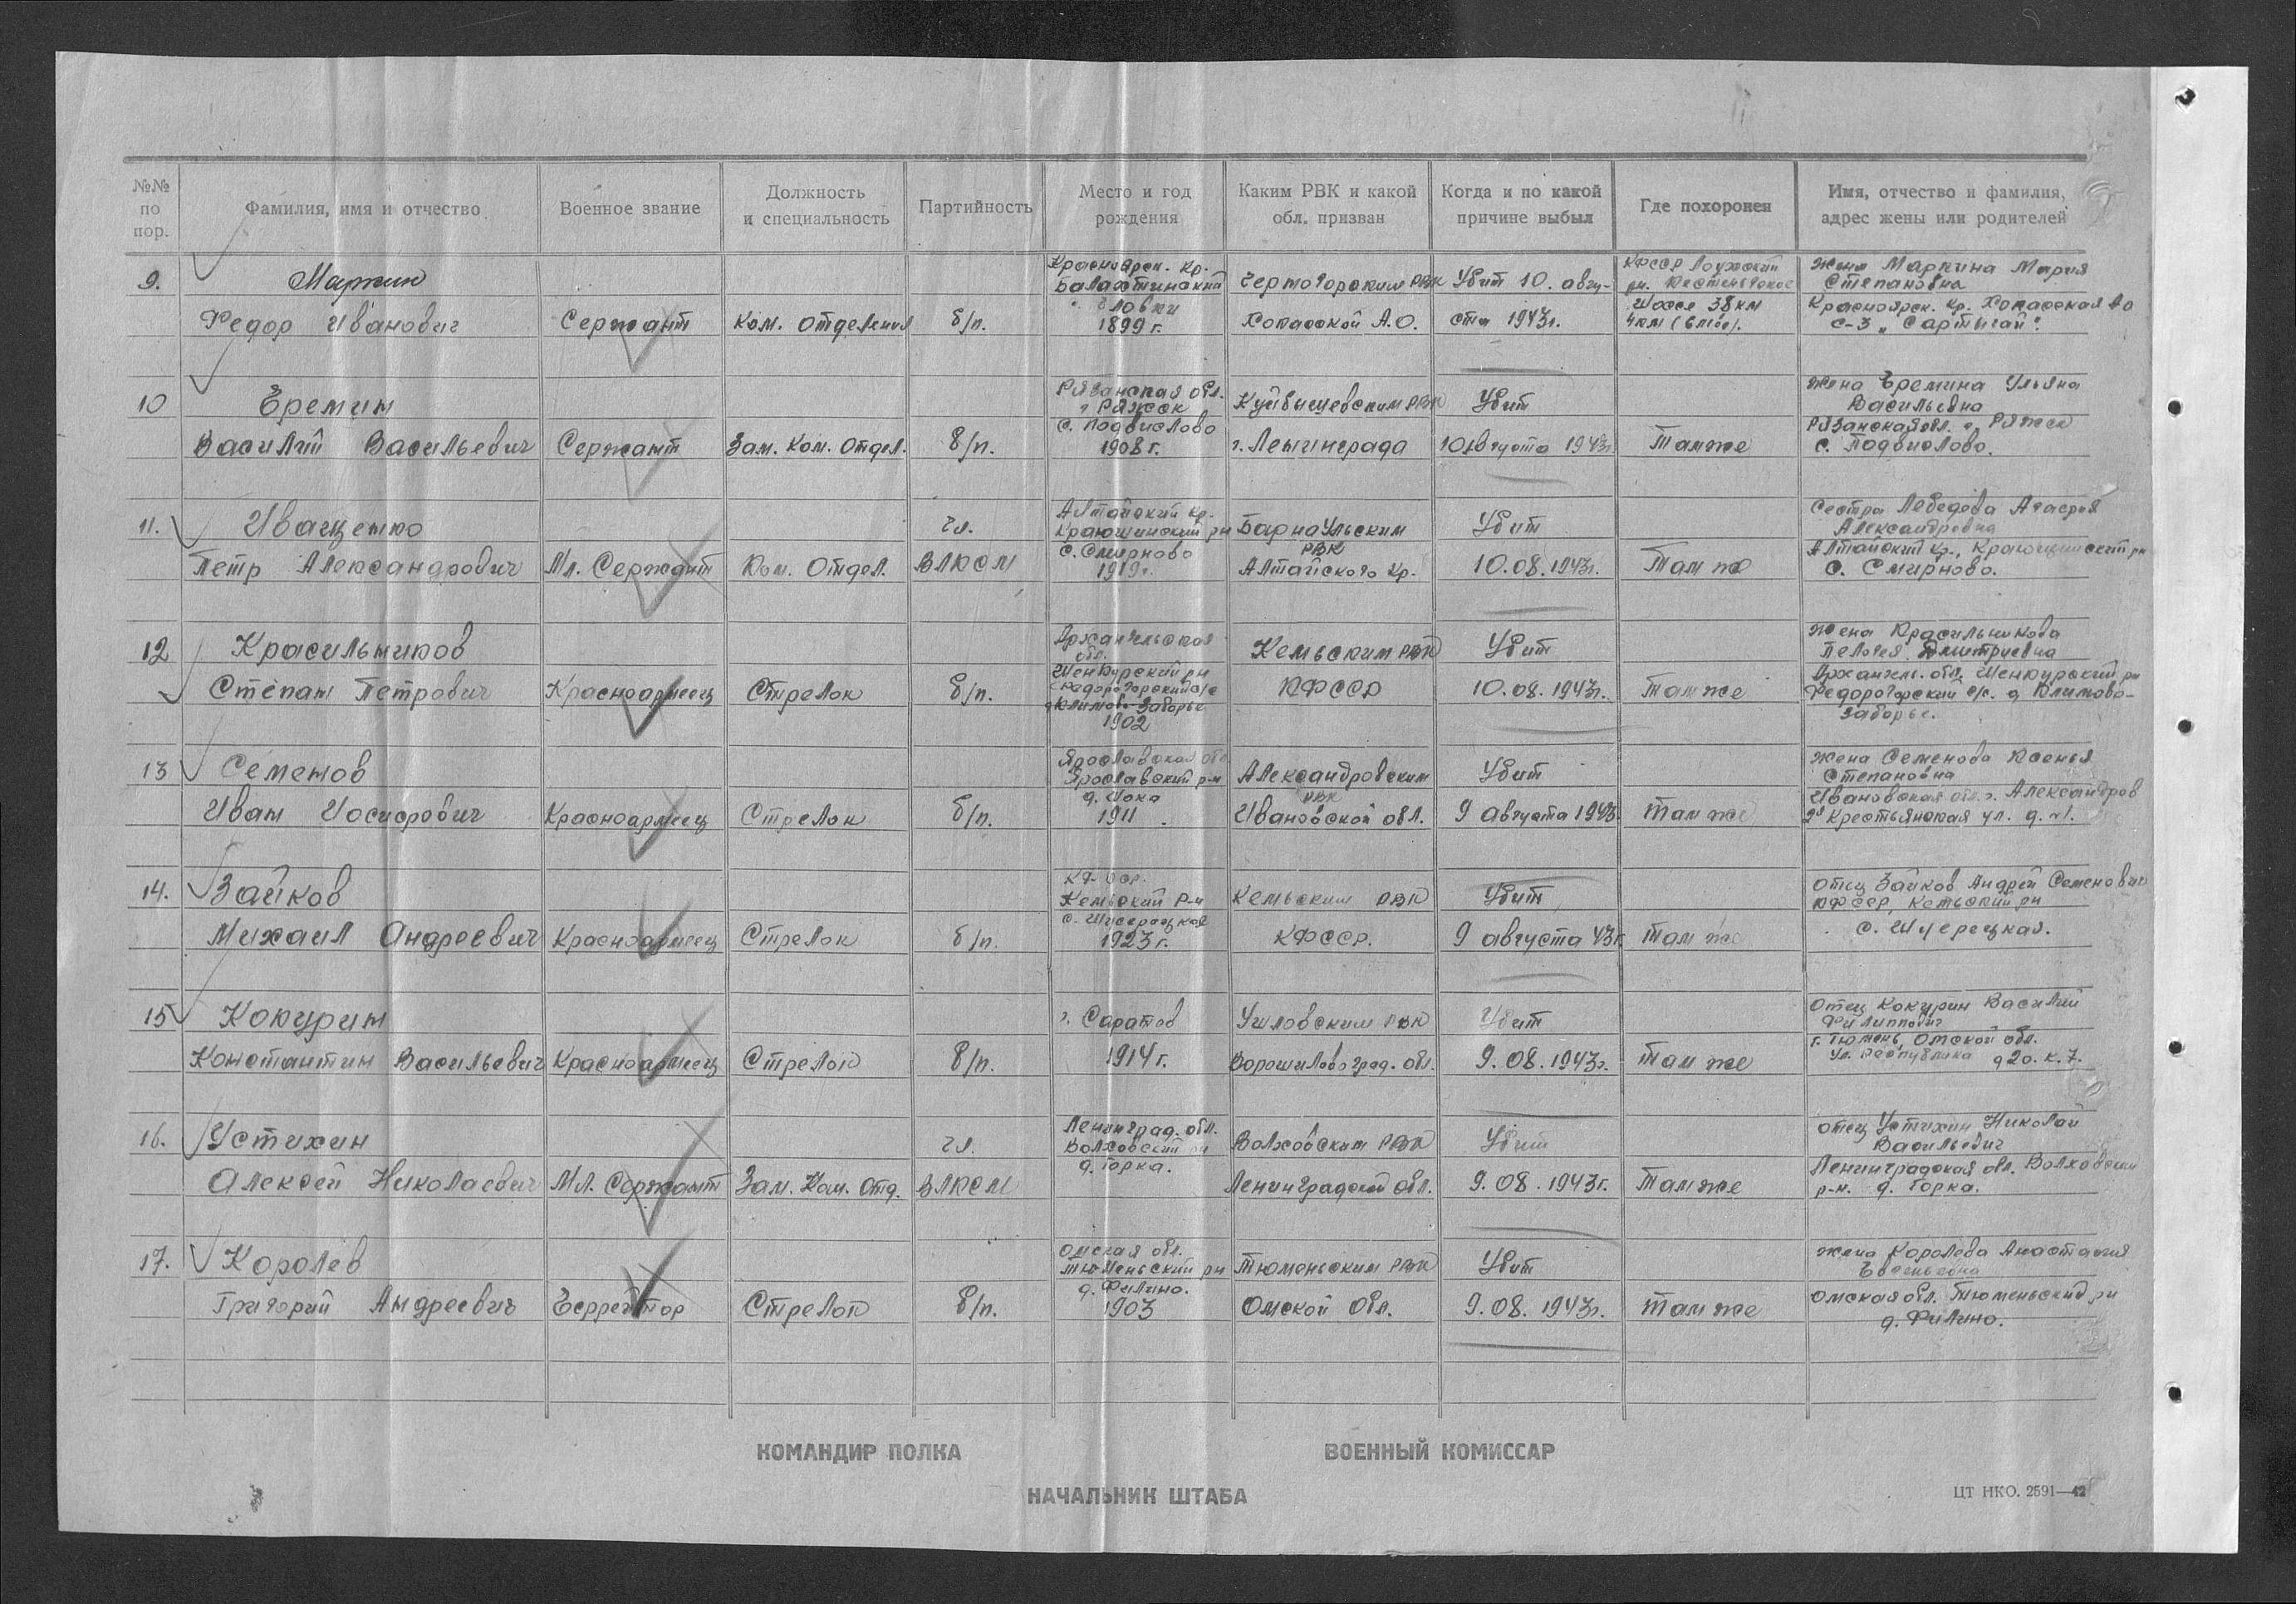 №№ по пор.
Фамилия, имя и отчество
Военное звание
Должность и специальность
Партийность
Место и год рождения
Каким РВК и какой обл. призван
Когда и по какой причине выбыл
Где похоронен
Имя, отчество и фамилия, адрес жены или родителей
9.
Маркин
Федор Иванович
Сержант
Ком. отделения
б/п.
Красноярск. кр.
Балахтинский
1899 г.
Черногорским РВК
Хокасской А.О.
Убит 10. авгу-
ста 1943г.
КФССР Лоухский
рн. Кестеньгское
Шоссе 38 км
жена Маркина Мария
Степановна
Красноярск. кр. Хокасская Ао
с-з „
10
Еремин
Василий Васильевич
Сержант
Зам. Ком. Отдел.
б/п.
Рязанская обл.
г Ряжск
с. Подвислово
1908 г.
Куйбышевским РВК
г. Ленинграда
Убит
10 августа 1943г
Там же
жена Еремина Ульяна
Васильевна
Рязанская обл. г. Ряжск
с. Подвислово.
11.
Иващенко
Петр Александрович
Мл. Сержант
Ком. Отдел.
чл.
ВЛКСМ
Алтайский кр.
Краюшинский рн
с. Смирново
1919г.
Барнаульским
РВК
Алтайского кр.
Убит
10.08.1943г.
Там же
Сестра Лебедева
Александровна
Алтайский кр., Краюшинский рн
с. Смирново.
12
Красильников
Степан Петрович
Красноармеец
Стрелок
б/п.
Архангельская
обл.
Шенкурский рн
Федорогорский с/с
д Климово-Заборье
1902
Кемьским РВК
КФССР
Убит
10.08.1943г.
Там же
жена Красильникова
Пелогея Дмитриевна
Архангель. обл. Шенкурский рн
Федорогорский с/с. д Климово-
Заборье.
13
Семенов
Иван Иосифович
Красноармеец
Стрелок
б/п.
Ярославская обл
Ярославский р-н
1911
Александровским
РВК
Ивановской обл.
Убит
9 августа 1943
Там же
жена Семенова Ксенья
Степановна
Ивановская обл. г. Александров
Крестьянская ул.
14.
Зайков
Михаил Андреевич
Красноармеец
Стрелок
б/п.
КФ. ССР.
Кемьский р-н
1923 г.
Кемьским РВК
КФССР.
Убит
9 августа 43г.
Там же
отец Зайков Андрей Семенович
КФССР, Кемьский рн
15
Кокурин
Константин Васильевич
Красноармеец
Стрелок
б/п.
г. Саратов
1914 г.
РВК
Ворошиловоград. обл.
Убит
9.08.1943г.
Там же
Отец Кокурин Василий
Филиппович
г. Тюмень, Омской обл.
ул. Республика д 20. к. 7.
16.
Устихин
Алексей Николаевич
Мл. Сержант
Зам. Ком. Отд.
чл.
ВЛКСМ
Ленинград. обл.
Волховский рн
д. Горка.
Волховским РВК
Ленинградской обл.
Убит
9.08.1943г.
Там же
отец Устихин Николай
Васильевич
Ленинградская обл. Волховский
р-н. д. Горка.
17.
Королев
Григорий Андреевич
Ефрейтор
Стрелок
б/п.
Омская обл.
Тюменьский рн
д. Филино.
1903
Тюменьским РВК
Омской обл.
Убит
9.08.1943г.
Там же
жена Королева Анастасия
Омская обл. Тюменьский рн
д. Филино.
КОМАНДИР ПОЛКА
ВОЕННЫЙ КОМИССАР
НАЧАЛЬНИК ШТАБА
ЦТ НКО. 2591—42